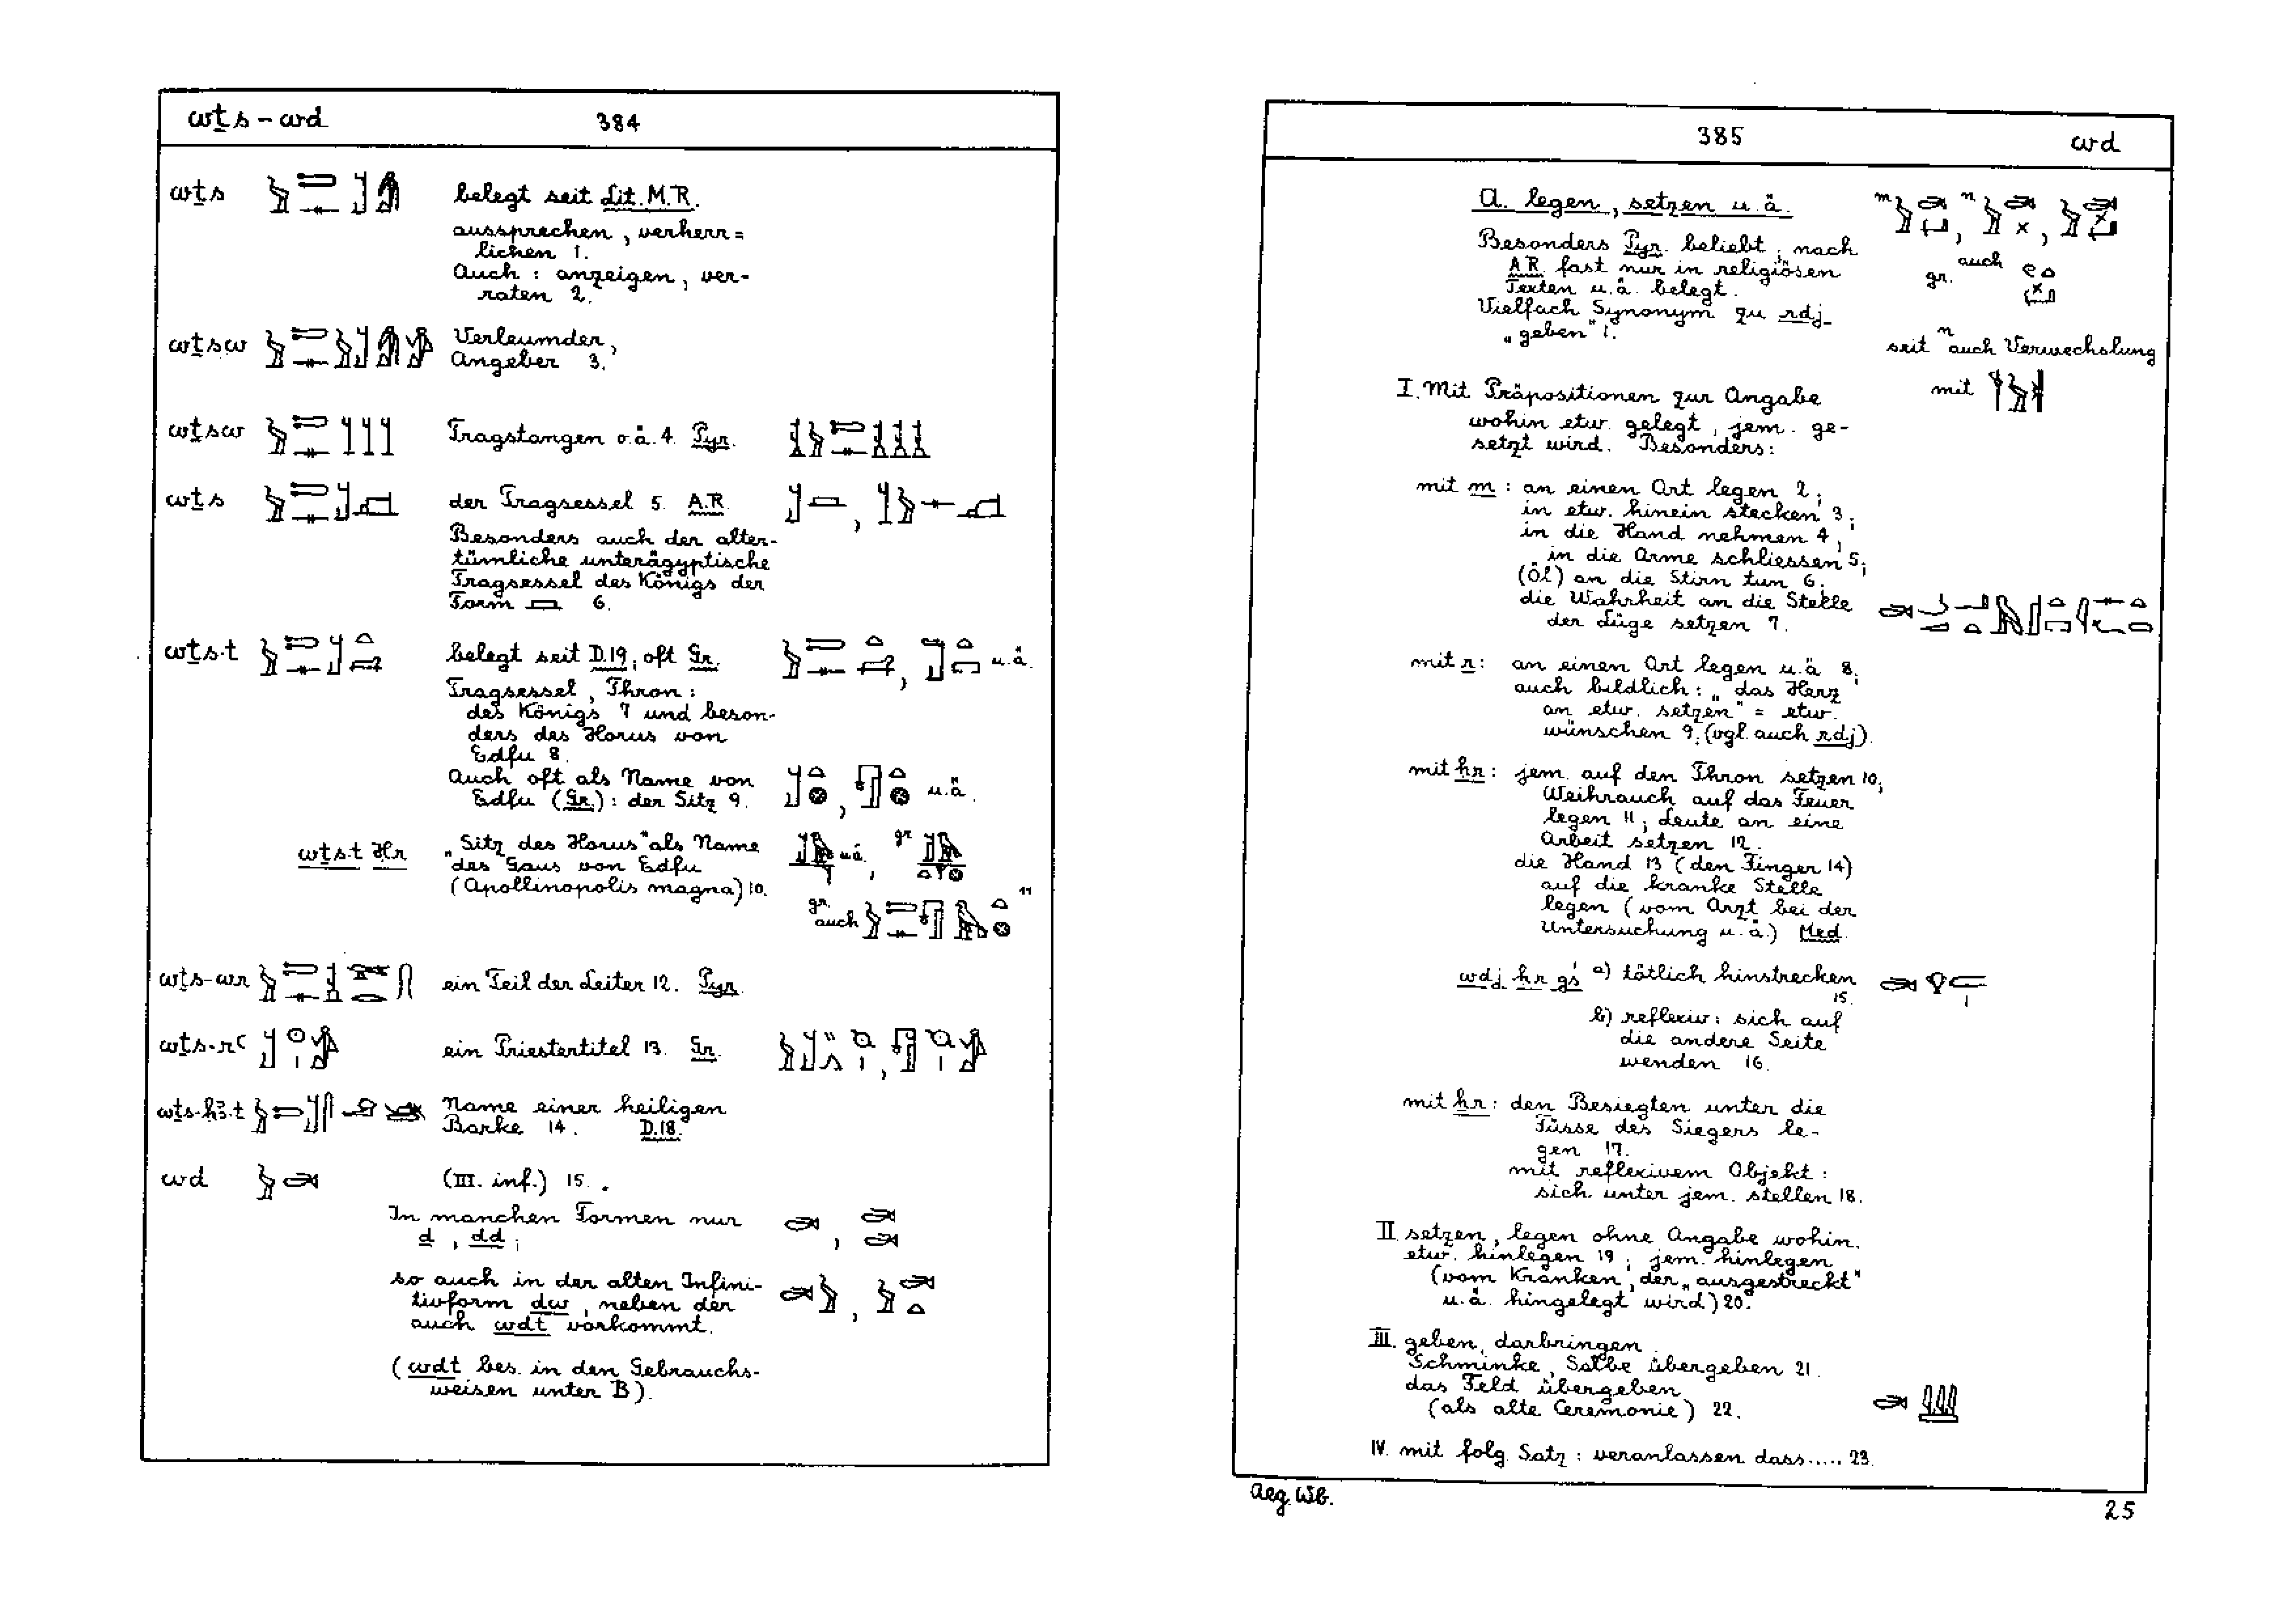 wṯs - wd 384
wṯs belegt seit Lit. M.R.
aussprechen, verherr=
lichen 1.
Auch: anzeigen, ver-
raten 2.
wṯsw Verleumder,
Angeber 3.
wṯsw Tragstangen o.ä. 4. Pyr.
wṯs der Tragsessel 5. A.R.
Besonders auch der alter-
tümliche unterägyptische
Tragsessel des Königs der
Form 6.
wṯs.t belegt seit D.19, oft Gr. u.ä.
Tragsessel, Thron:
des Königs 7 und beson-
ders des Horus von
Edfu 8.
Auch oft als Name von
Edfu (Gr.): der Sitz 9. u.ä.
wṯs.t Ḥr „Sitz des Horus" als Name u.ä. gr.
des Gaus von Edfu
(Apollinopolis magna) 10.
gr. auch 11
wṯs-wr ein Teil der Leiter 12. Pyr.
wṯs-rꜥ ein Priestertitel 13. Gr.
wṯs-ḥꜣ.t Name einer heiligen
Barke 14. D.18.
wd (III. inf.) 15.
In manchen Formen nur
d, dd;
so auch in der alten Infini-
tivform dw, neben der
auch wdt vorkommt.
(wdt bes. in den Gebrauchs-
weisen unter B).
385 wd
A. legen, setzen u.ä. m n
Besonders Pyr. beliebt; nach
A.R. fast nur in religiösen auch gr.
Texten u.ä. belegt.
Vielfach Synonym zu rdj
„geben" 1.
seit n auch Verwechslung
mit
I. Mit Präpositionen zur Angabe
wohin etw. gelegt, jem. ge-
setzt wird. Besonders:
mit m: an einen Ort legen 2;
in etw. hinein stecken 3;
in die Hand nehmen 4,
in die Arme schliessen 5;
(Öl) an die Stirn tun 6;
die Wahrheit an die Stelle
der Lüge setzen 7.
mit r: an einen Ort legen u.ä. 8;
auch bildlich: „das Herz
an etw. setzen" = etw.
wünschen 9; (vgl. auch rdj).
mit ḥr: jem. auf den Thron setzen 10;
Weihrauch auf das Feuer
legen 11; Leute an eine
Arbeit setzen 12.
die Hand 13 (den Finger 14)
auf die kranke Stelle
legen (vom Arzt bei der
Untersuchung u.ä.) Med.
wdj ḥr gś a) tötlich hinstrecken
15.
b) reflexiv: sich auf
die andere Seite
wenden 16.
mit ẖr: den Besiegten unter die
Füsse des Siegers le-
gen 17.
mit reflexivem Objekt:
sich unter jem. stellen 18.
II. setzen, legen ohne Angabe wohin.
etw. hinlegen 19; jem. hinlegen
(vom Kranken, der „ausgestreckt"
u.ä. hingelegt wird) 20.
III. geben, darbringen.
Schminke, Salbe übergeben 21.
das Feld übergeben
(als alte Ceremonie) 22.
IV. mit folg. Satz: veranlassen dass..... 23.
Aeg. Wb. 25